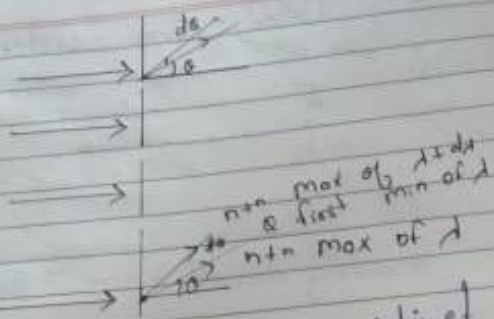 dθ
θ
nth max of λ+dλ
& first min of λ
dθ
nth max of λ
θ